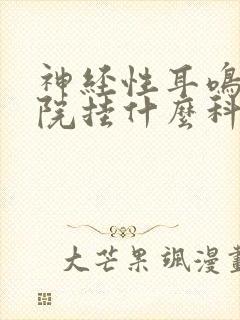 神经性耳鸣
院挂什麼科
大芒果飒漫畫